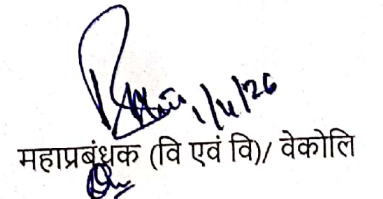 1/4/26
महाप्रबंधक (वि एवं वि)/ वेकोलि